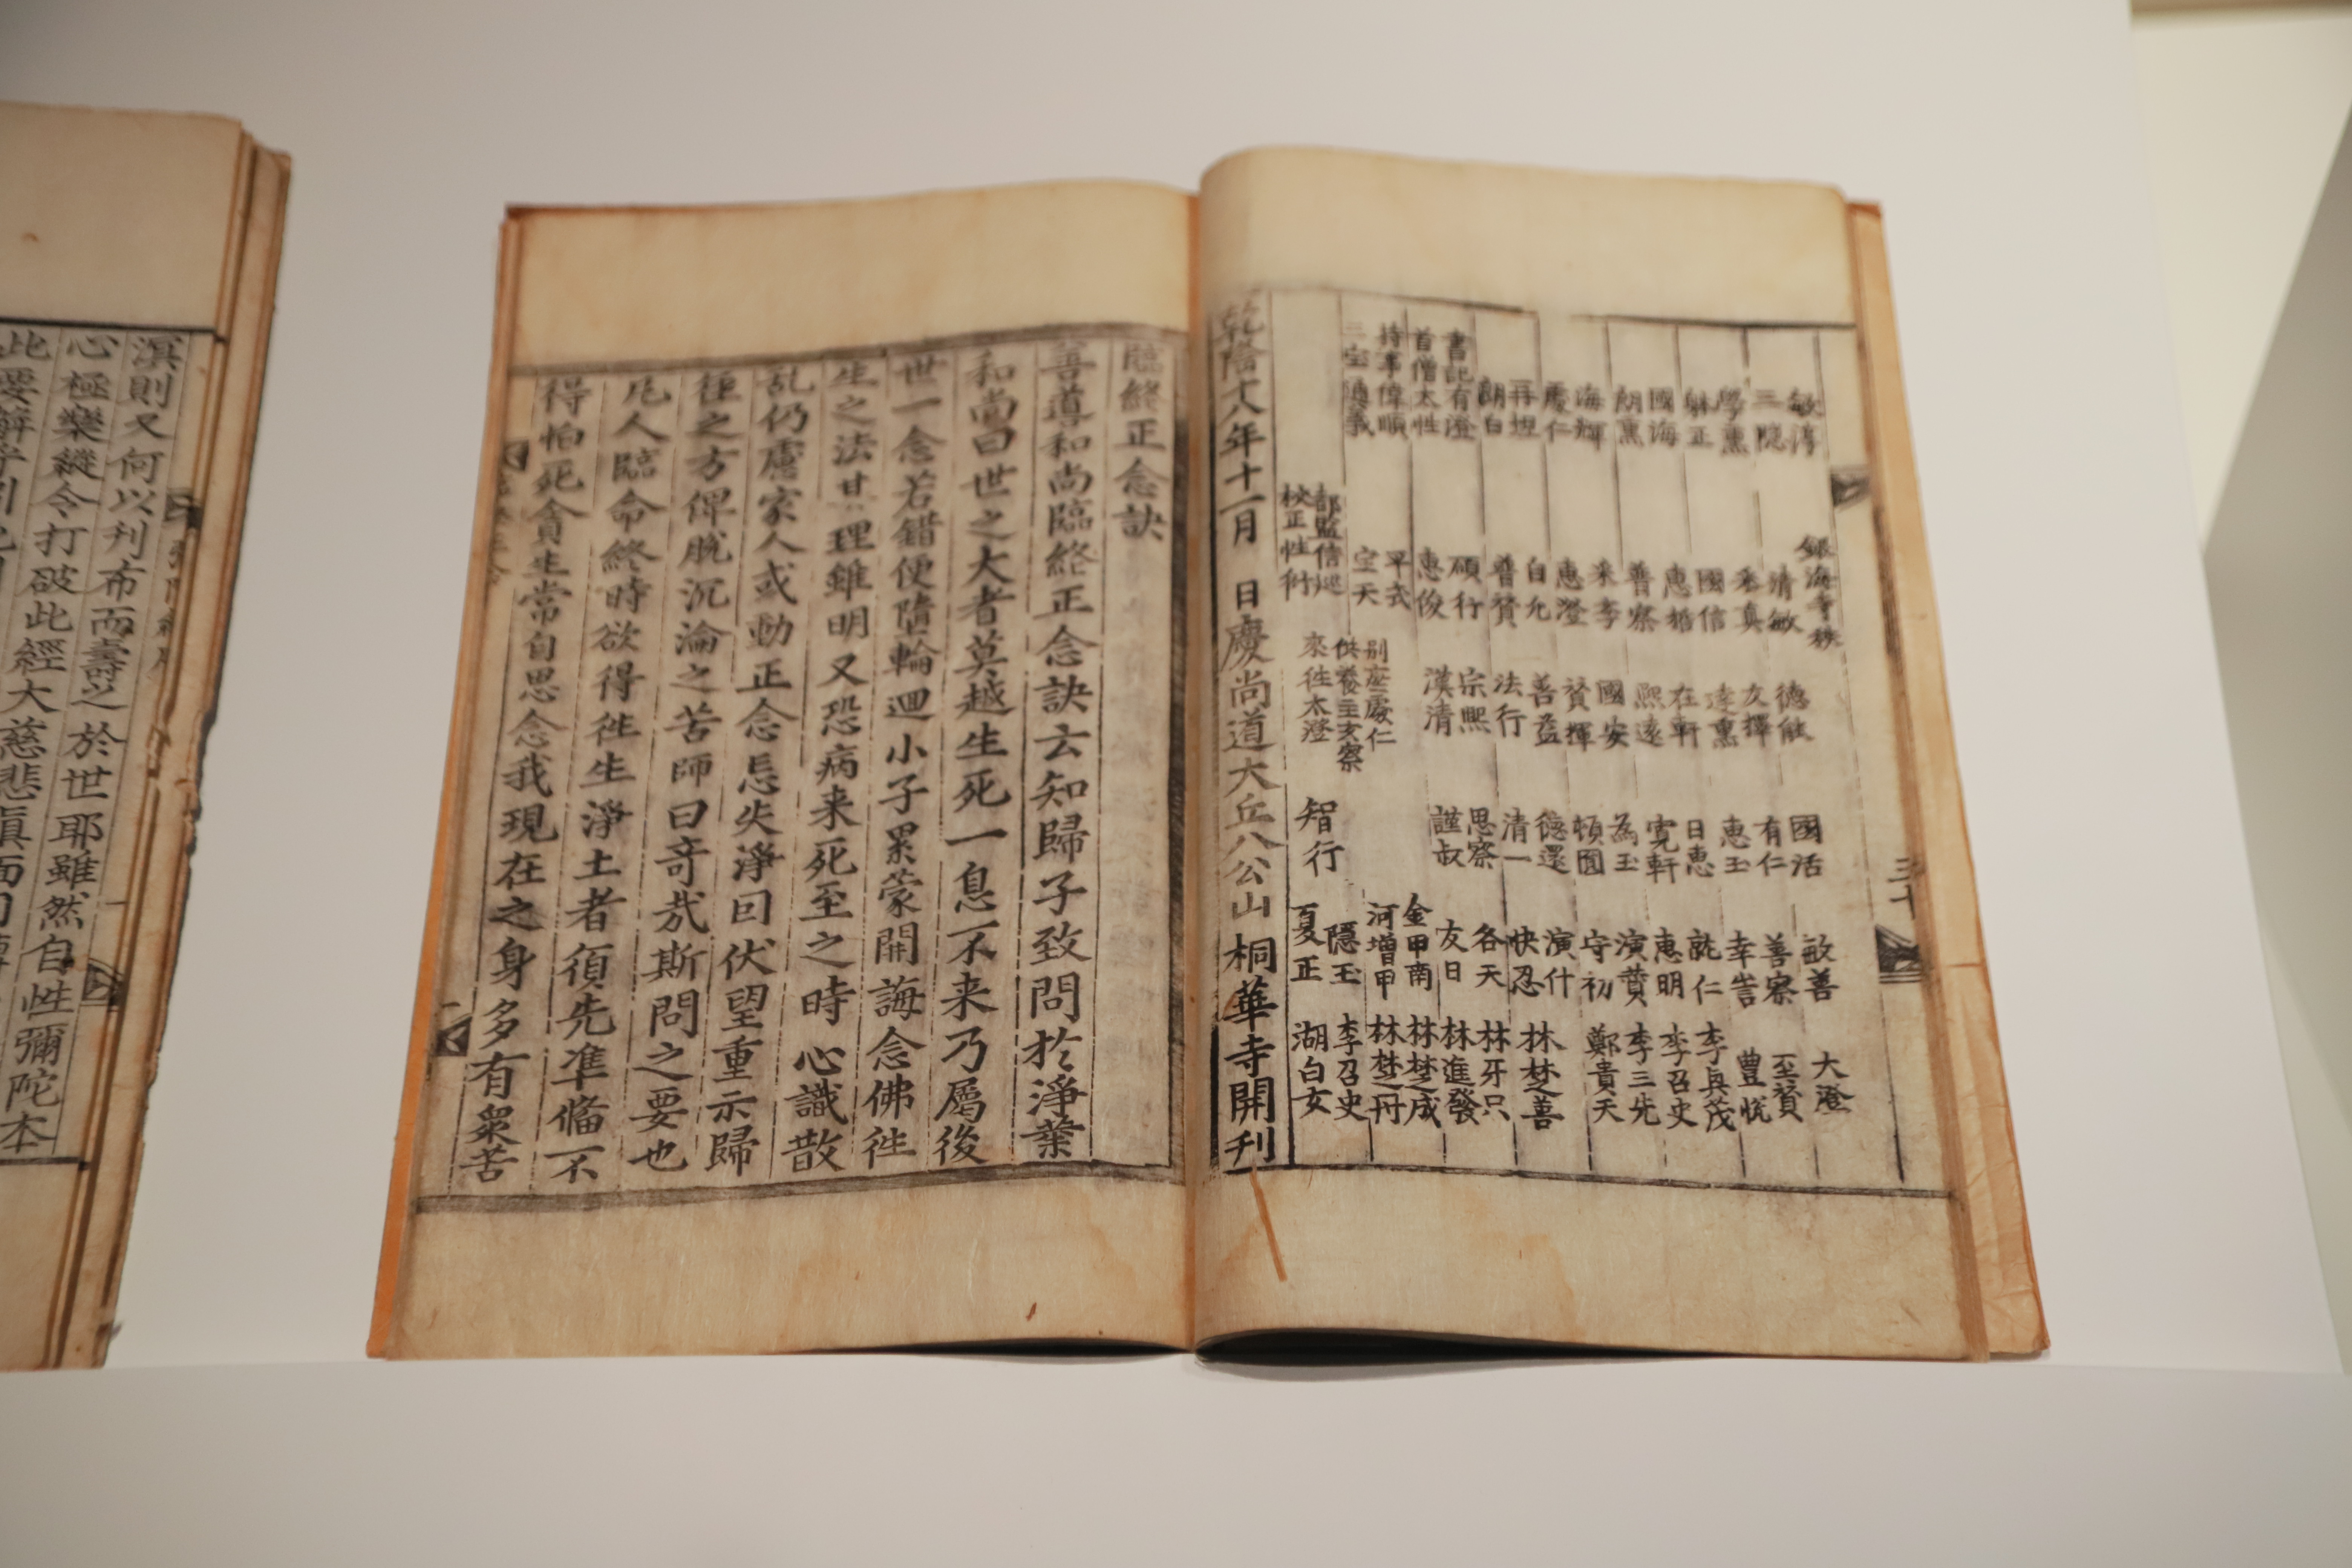 銀海寺秩
敏淳 清敏 德能 國活 敏善 大澄
三隱 秉真 友擇 有仁 善察 至贊
學熏 國信 逵熏 惠玉 幸訔 豊悅
正 惠 在軒 日惠 就仁 李與茂
國海 普察 熙遠 寬軒 惠明 李召史
朗熏 采季 國安 為玉 演贊 李三先
海輝 惠澄 贊揮 頓圎 守初 鄭貴天
慶仁 白允 善益 德還 演什 林椘善
再坦 普贊 法行 清一 快忍 林牙只
朗白 碩行 宗熙 思察 各天 林進發
書記有澄 惠俊 漢清 謹叔 友日 林椘成
首僧太性 平式 別座慶仁 金甲南 林椘丹
持事偉順 空天 供養主亥察 河增甲 李召史
三宝 義 都監信巡 來徃太澄 智行 隱玉 湖白女
校正性衍 夏正
乾隆十八年十一月 日慶尚道大丘八公山桐華寺開刋
三十
臨終正念訣
善導和尚臨終正念訣云知歸子致問於淨業
和尚曰世之大者莫越生死一息不来乃屬後
世一念若錯便墮輪迴小子累蒙開誨念佛徃
生之法其理雖明又恐病来死至之時心識散
乱仍慮家人或動正念忘失淨囙伏望重示歸
徑之方俾脫沉淪之苦師曰竒㢤斯問之要也
凡人臨命終時欲得徃生淨土者湏先凖俻不
得怕死貪生常自思念我現在之身多有衆苦
溟則又何以刊布而壽之於世耶雖然自性彌陀本
心極樂縱令打破此經大慈悲眞面
此要觧